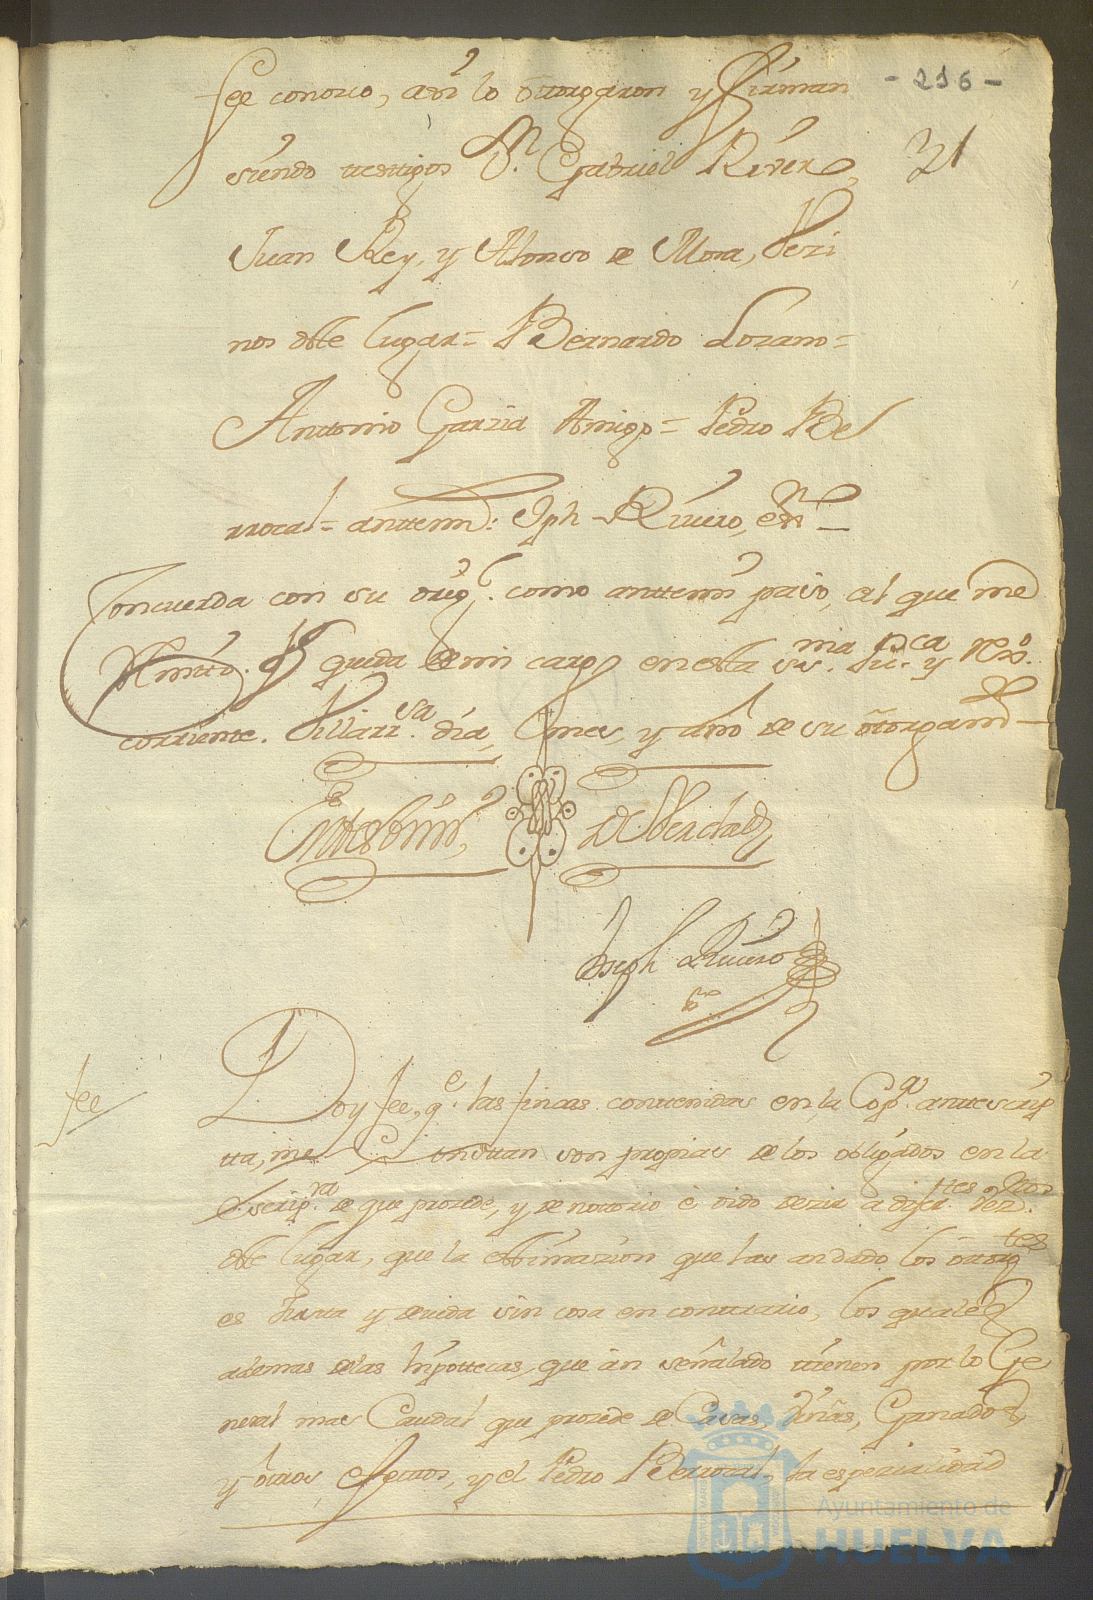 - 216 -
31
fee conozco, asi lo otorgaron y firman
siendo testigos Dn. Gabriel River
Juan Rey, y Alonso de Mora, Vezi
nos dste lugar = Bernardo Lozano =
Anttonio Garzia Amigo = Pedro Be
rrocal = anttemi: Jph Rivero, essno
Concuerda con su orig.l como anttemi paso, al que me
Remito. queda de mi cargo en esta ssma. pu.ca y Rexo.
corriente. Villarr.sa día, mes, y año de su otorgam.to
Joseph Rivero
fee
Doy fee, q.e las fincas contenidas en la Cop.a anttescrip
tta, me Constan son propias de los obligados en la
Escrip.ra de que prozede, y de notorio è oido dezir a difer.tes Vez.nos
dste lugar, que la esttimazion que las an dado los otorg.tes
es Justa y devida sin cosa en conttrario, los quales
ademas de las Hipottecas, que an señalado tienen por lo Ge
neral mas Caudal que prozede de Casas, viñas, Ganados,
y ôtros efectos, y el Pedro Berrocal, la espezialidad
Ayuntamiento de
HUELVA